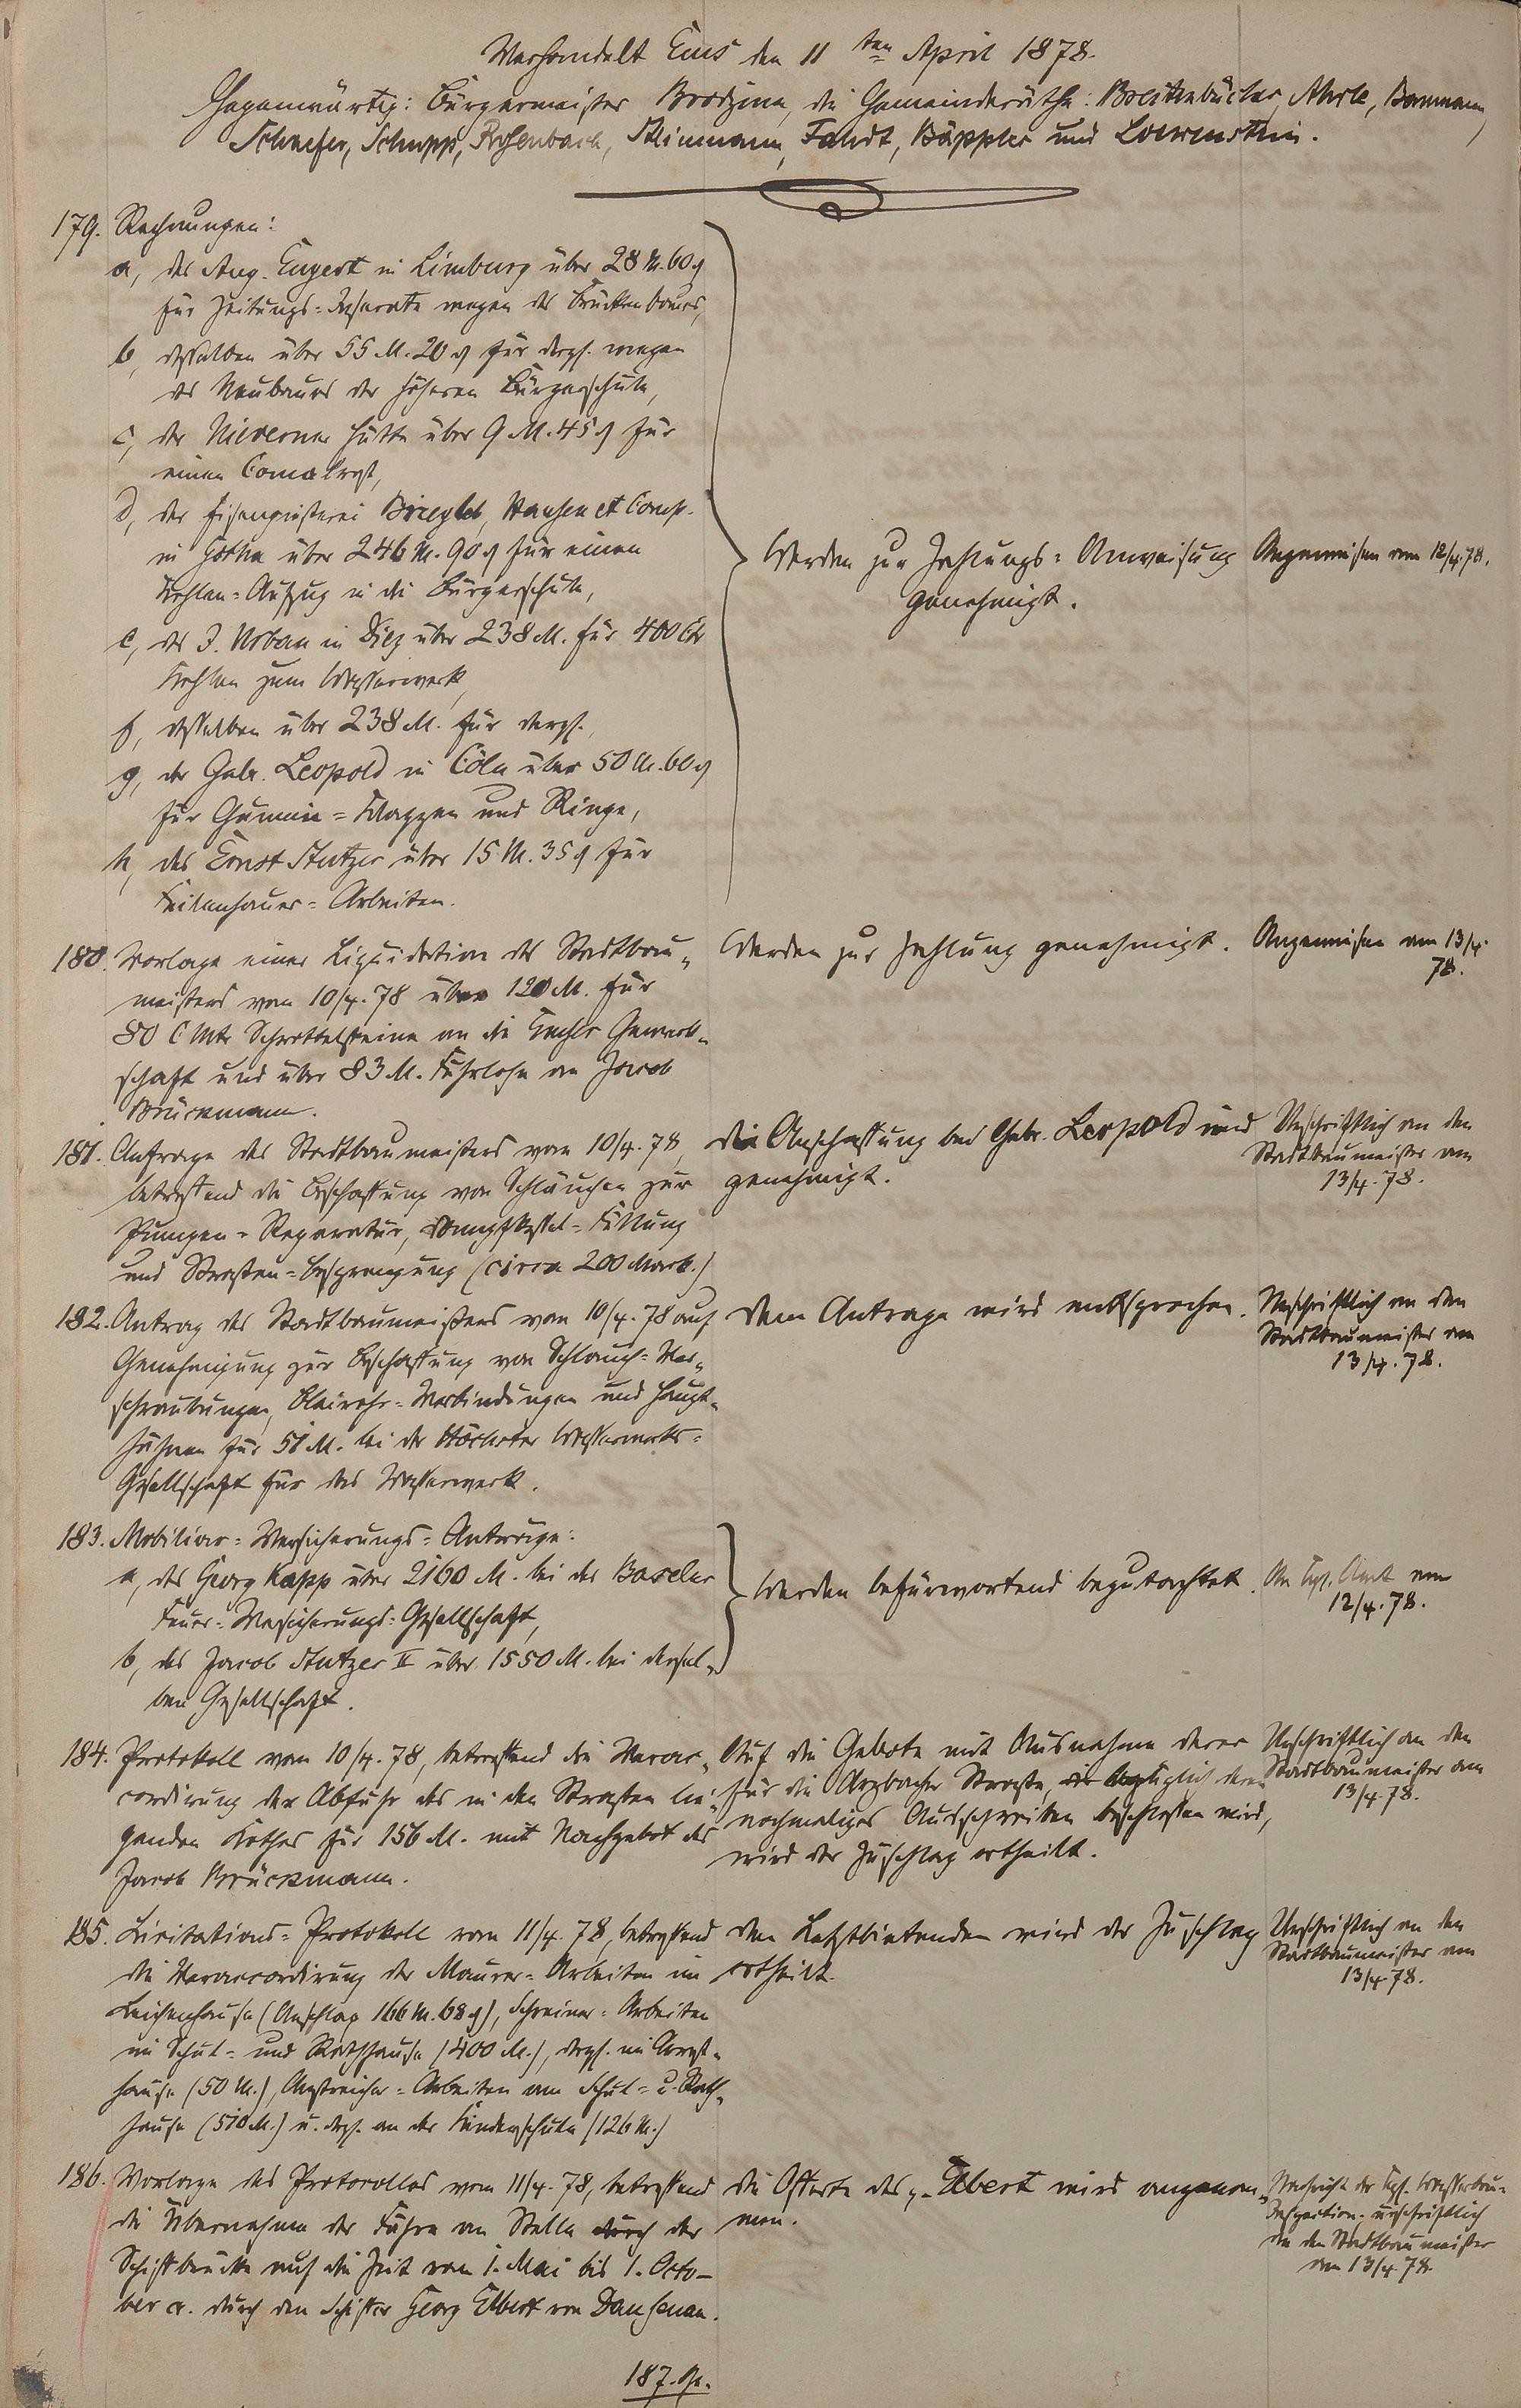 Verhandelt Ems den 11ten April 1878.
Gegenwärtig: Bürgermeister Brodzina, die Gemeinderäthe: Breitenbücher, Ahrle, Baumann,
Schaefer, Schupp, Rosenbach, Steinmann, Fahdt, Bäppler und Loewenstein.
179. Rechnungen:
a, des Aug. Engert in Limburg über 28 M. 60 ₰
für Zeitungs-Inserate wegen des Brückenbaues,
b, desselben über 55 M. 20 ₰ für dergl. wegen
des Neubaues der höheren Bürgerschule,
c, der Nieverner Hütte über 9 M. 45 ₰ für
einen
d, der Eisengießerei Briegleb, Hansen et Comp.
in Gotha über 246 M. 90 ₰ für einen
Kohlen-Aufzug in die Bürgerschule,
e, des J. Urban in Diez über 238 M. für 400 Ctr
Kohlen zum Wasserwerk,
f, desselben über 238 M. für dergl.,
g, der Gebr. Leopold in Cöln über 50 M. 60 ₰
für Gummi-Klappen und Ringe,
h, des Ernst Stutzer über 15 M. 35 ₰ für
Feilenhauer-Arbeiten.
Werden zur Zahlungs-Anweisung
genehmigt.
Angewiesen am 12/4.78.
180. Vorlage einer Liquidation des Stadtbau-
meisters vom 10/4.78 über 120 M. für
80 CMtr Schrottelsteine an die Emser Gewerk-
schaft und über 83 M. Fuhrlohn an Jacob
Brückmann.
Werden zur Zahlung genehmigt.
Angewiesen am 13/4.
78.
181. Anfrage des Stadtbaumeisters vom 10/4.78,
betreffend die Beschaffung von Schläuchen zur
Pumpen-Reparatur, Dampfkessel-Füllung
und Straßen-Besprengung (circa 200 Mark.)
Die Anschaffung bei Gebr. Leopold wird
genehmigt.
Urschriftlich an den
Stadtbaumeister am
13/4.78.
182. Antrag des Stadtbaumeisters vom 10/4.78 auf
Genehmigung zur Beschaffung von Schlauch-Ver-
schraubungen, Bleirohr-Verbindungen und Haupt-
hähnen für 51 M. bei der Höchster Wasserwerks-
Gesellschaft für das Wasserwerk.
Dem Antrage wird entsprochen.
Urschriftlich an den
Stadtbaumeister am
13/4.78.
183. Mobiliar-Versicherungs-Anträge:
a, des Georg Kapp über 2160 M. bei der Baseler
Feuer-Versicherungs-Gesellschaft,
b, des Jacob Stutzer II über 1550 M. bei dersel-
ben Gesellschaft.
Werden befürwortend begutachtet.
An Kgl. Amt am
12/4.78.
184. Protokoll vom 10/4.78, betreffend die Verac-
cordirung der Abfuhr des in den Straßen lie-
genden Kothes für 156 M. mit Nachgebot des
Jacob Brückmann.
Auf die Gebote mit Ausnahme derer
für die Arzbacher Straße, bezüglich deren
nochmaliges Ausschreiben beschlossen wird,
wird der Zuschlag ertheilt.
Urschriftlich an den
Stadtbaumeister am
13/4.78.
185. Licitations-Protokoll vom 11/4.78, betreffend
die Veraccordirung der Maurer-Arbeiten im
Leichenhause (Anschlag 166 M. 68 ₰), Schreiner-Arbeiten
im Schul- und Rathhause (400 M.), dergl. im Arrest-
hause (50 M.), Anstreicher-Arbeiten am Schul- u. Rath-
hause (510 M.) u. dergl. an der Kinderschule (126 M.)
Den Letztbietenden wird der Zuschlag
ertheilt.
Urschriftlich an den
Stadtbaumeister am
13/4.78.
186. Vorlage des Protocolles vom 11/4.78, betreffend
die Übernahme der Fähre an Stelle durch der
Schiffbrücke auf die Zeit vom 1. Mai bis 1. Octo-
ber cr. durch den Schiffer Georg Elbert von Dausenau.
Die Offerte des p. Elbert wird angenom-
men.
Nachricht der Kgl. Wasserbau-
Inspection. urschriftlich
an den Stadtbaumeister
am 13/4.78.
187.